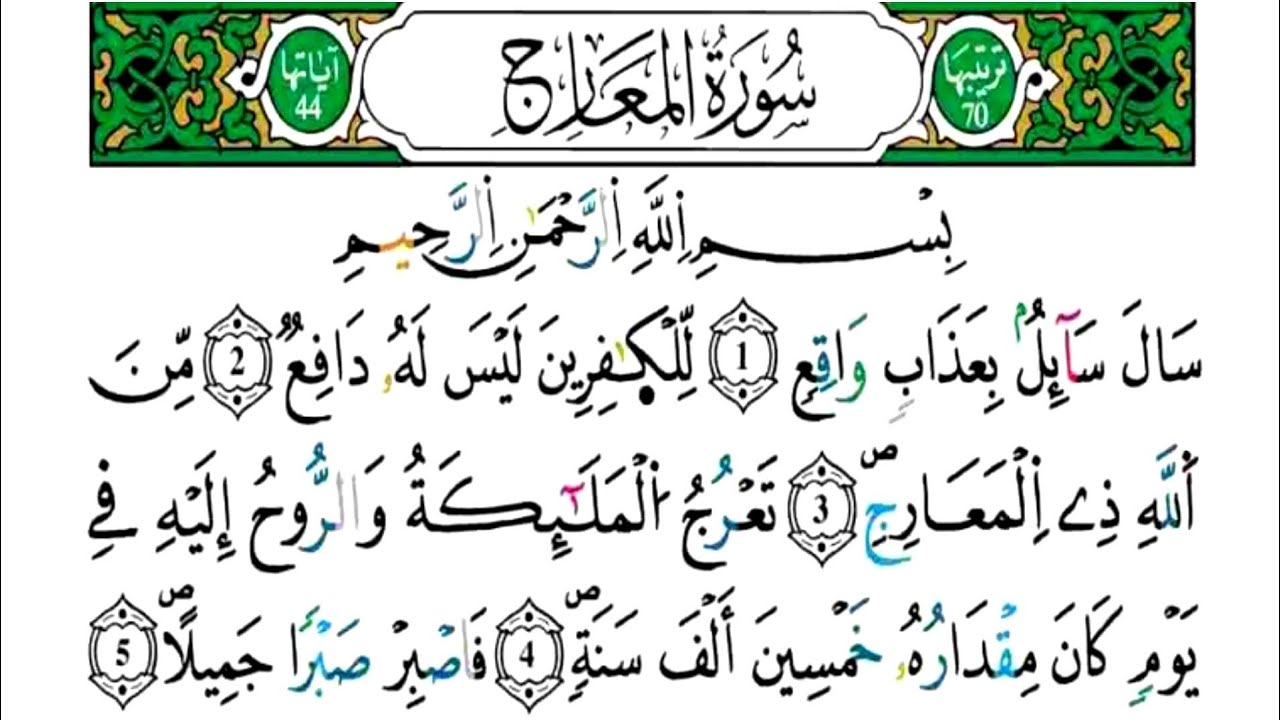 ترتيبها 70 سُورَةُ المَعَارِجِ آياتها 44
بِسْمِ اِللَّهِ اِلرَّحْمَٰنِ اِلرَّحِيمِ
سَالَ سَآئِلُۢ بِعَذَابٖ وَاقِعٖ 1 لِّلْكٰ۪فِرِينَ لَيْسَ لَهُۥ دَافِعٞ 2 مِّنَ
اَللَّهِ ذِے اِلْمَعَارِجِۖ 3 تَعْرُجُ اُلْمَلَٰٓئِكَةُ وَالرُّوحُ إِلَيْهِ فِے
يَوْمٖ كَانَ مِقْدَارُهُۥ خَمْسِينَ أَلْفَ سَنَةٖۖ 4 فَاصْبِرْ صَبْراٗ جَمِيلاًۖ 5